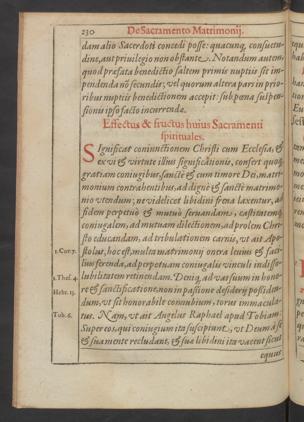 230 De Sacramento Matrimonij.
dam alio Sacerdoti concedi posse: quacunq, consuetu-
dine, aut priuilegio non obstante. Notandum autem,
quod præfata benedictio saltem primis nuptijs sit im-
pendenda nō secundis; vel quorum altera pars in prio-
ribus nuptijs benedictionem accepit: sub pœna suspen-
sionis ipso facto incurrenda.
Effectus & fructus huius Sacramenti
spirituales.
Significat coniunctionem Christi cum Ecclesia, &
ex vi & virtute illius significationis, confert quoq,
gratiam coniugibus, sanctè & cum timore Dei, matri-
monium contrahentibus, ad dignè & sanctè matrimo-
nio vtendum; ne videlicet libidini frena laxentur, ad
fidem perpetuò & mutuò seruandam, castitatemq́
coniugalem, ad mutuam dilectionem, ad prolem Chri-
sto educandam, ad tribulationem carnis, vt ait Apo-
1. Cor. 7. stolus, hoc est, multa matrimonij onera leuius & faci-
lius ferenda, ad perpetuam coniugalis vinculi indisso-
1. Thes. 4. lubilitatem retinendam. Deniq, ad vas suum in hono-
Hebr. 13. re & sanctificatione, non in passione desiderij possiden-
dum, vt sit honorabile connubium, torus immacula-
Tob. 6. tus. Nam, vt ait Angelus Raphael apud Tobiam:
Super eos, qui coniugium ita suscipiunt, vt Deum à se
& sua mente recludant, & sua libidini ita vacent sicut
equus